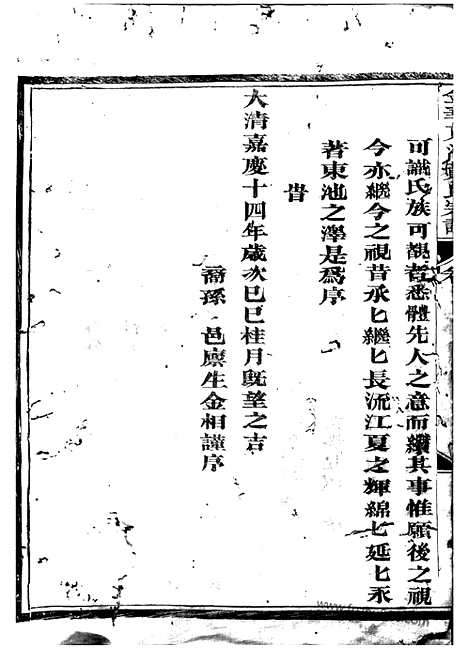 可識氏族可覩者悉體先人之意而纘其事惟願後之視
今亦繼今之視昔承匕繼匕長流江夏之輝綿匕延匕永
著東池之澤是爲序
旹
大清嘉慶十四年歲次已巳桂月旣望之吉
裔孫 邑廩生金相謹序